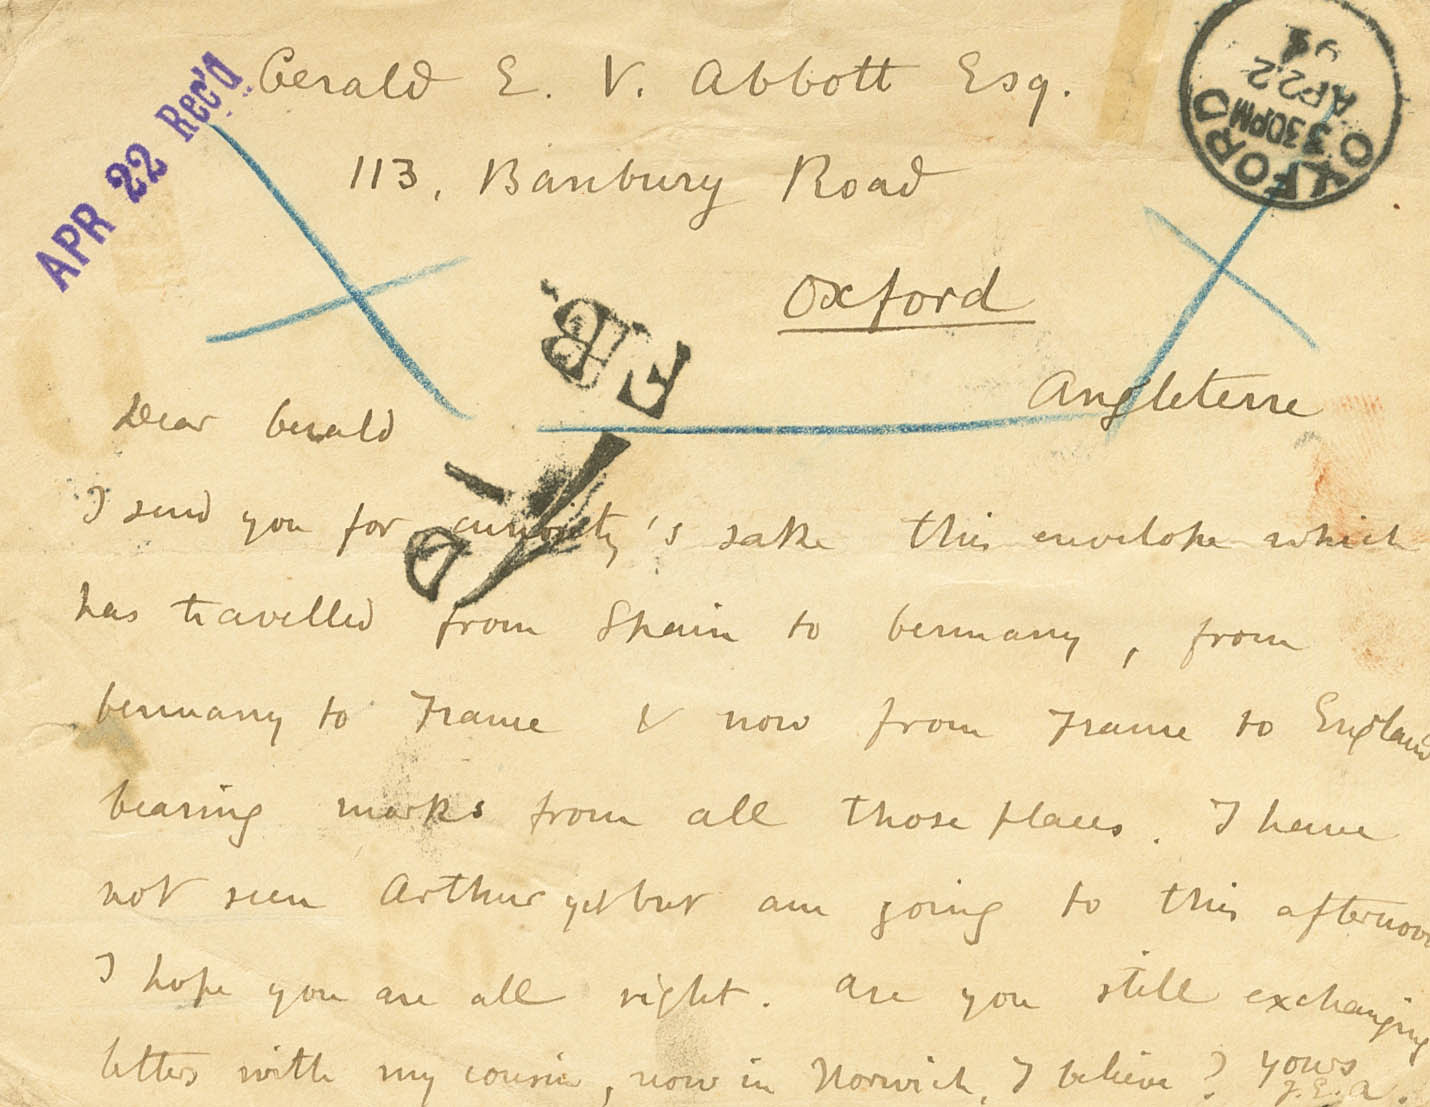 APR 22 Rec'd
Gerald E. V. Abbott Esq.
113, Banbury Road
Oxford
Angleterre
OXFORD
330PM
AP22
F.B.
Dear Gerald
I send you for curiosity's sake this envelope which
has travelled from Spain to Germany, from
Germany to France & now from France to England
bearing marks from all those places. I have
not seen Arthur yet but am going to this afternoon
I hope you are all right. Are you still exchanging
letters with my cousin, now in Norwich, I believe? Yours
J.E.A.